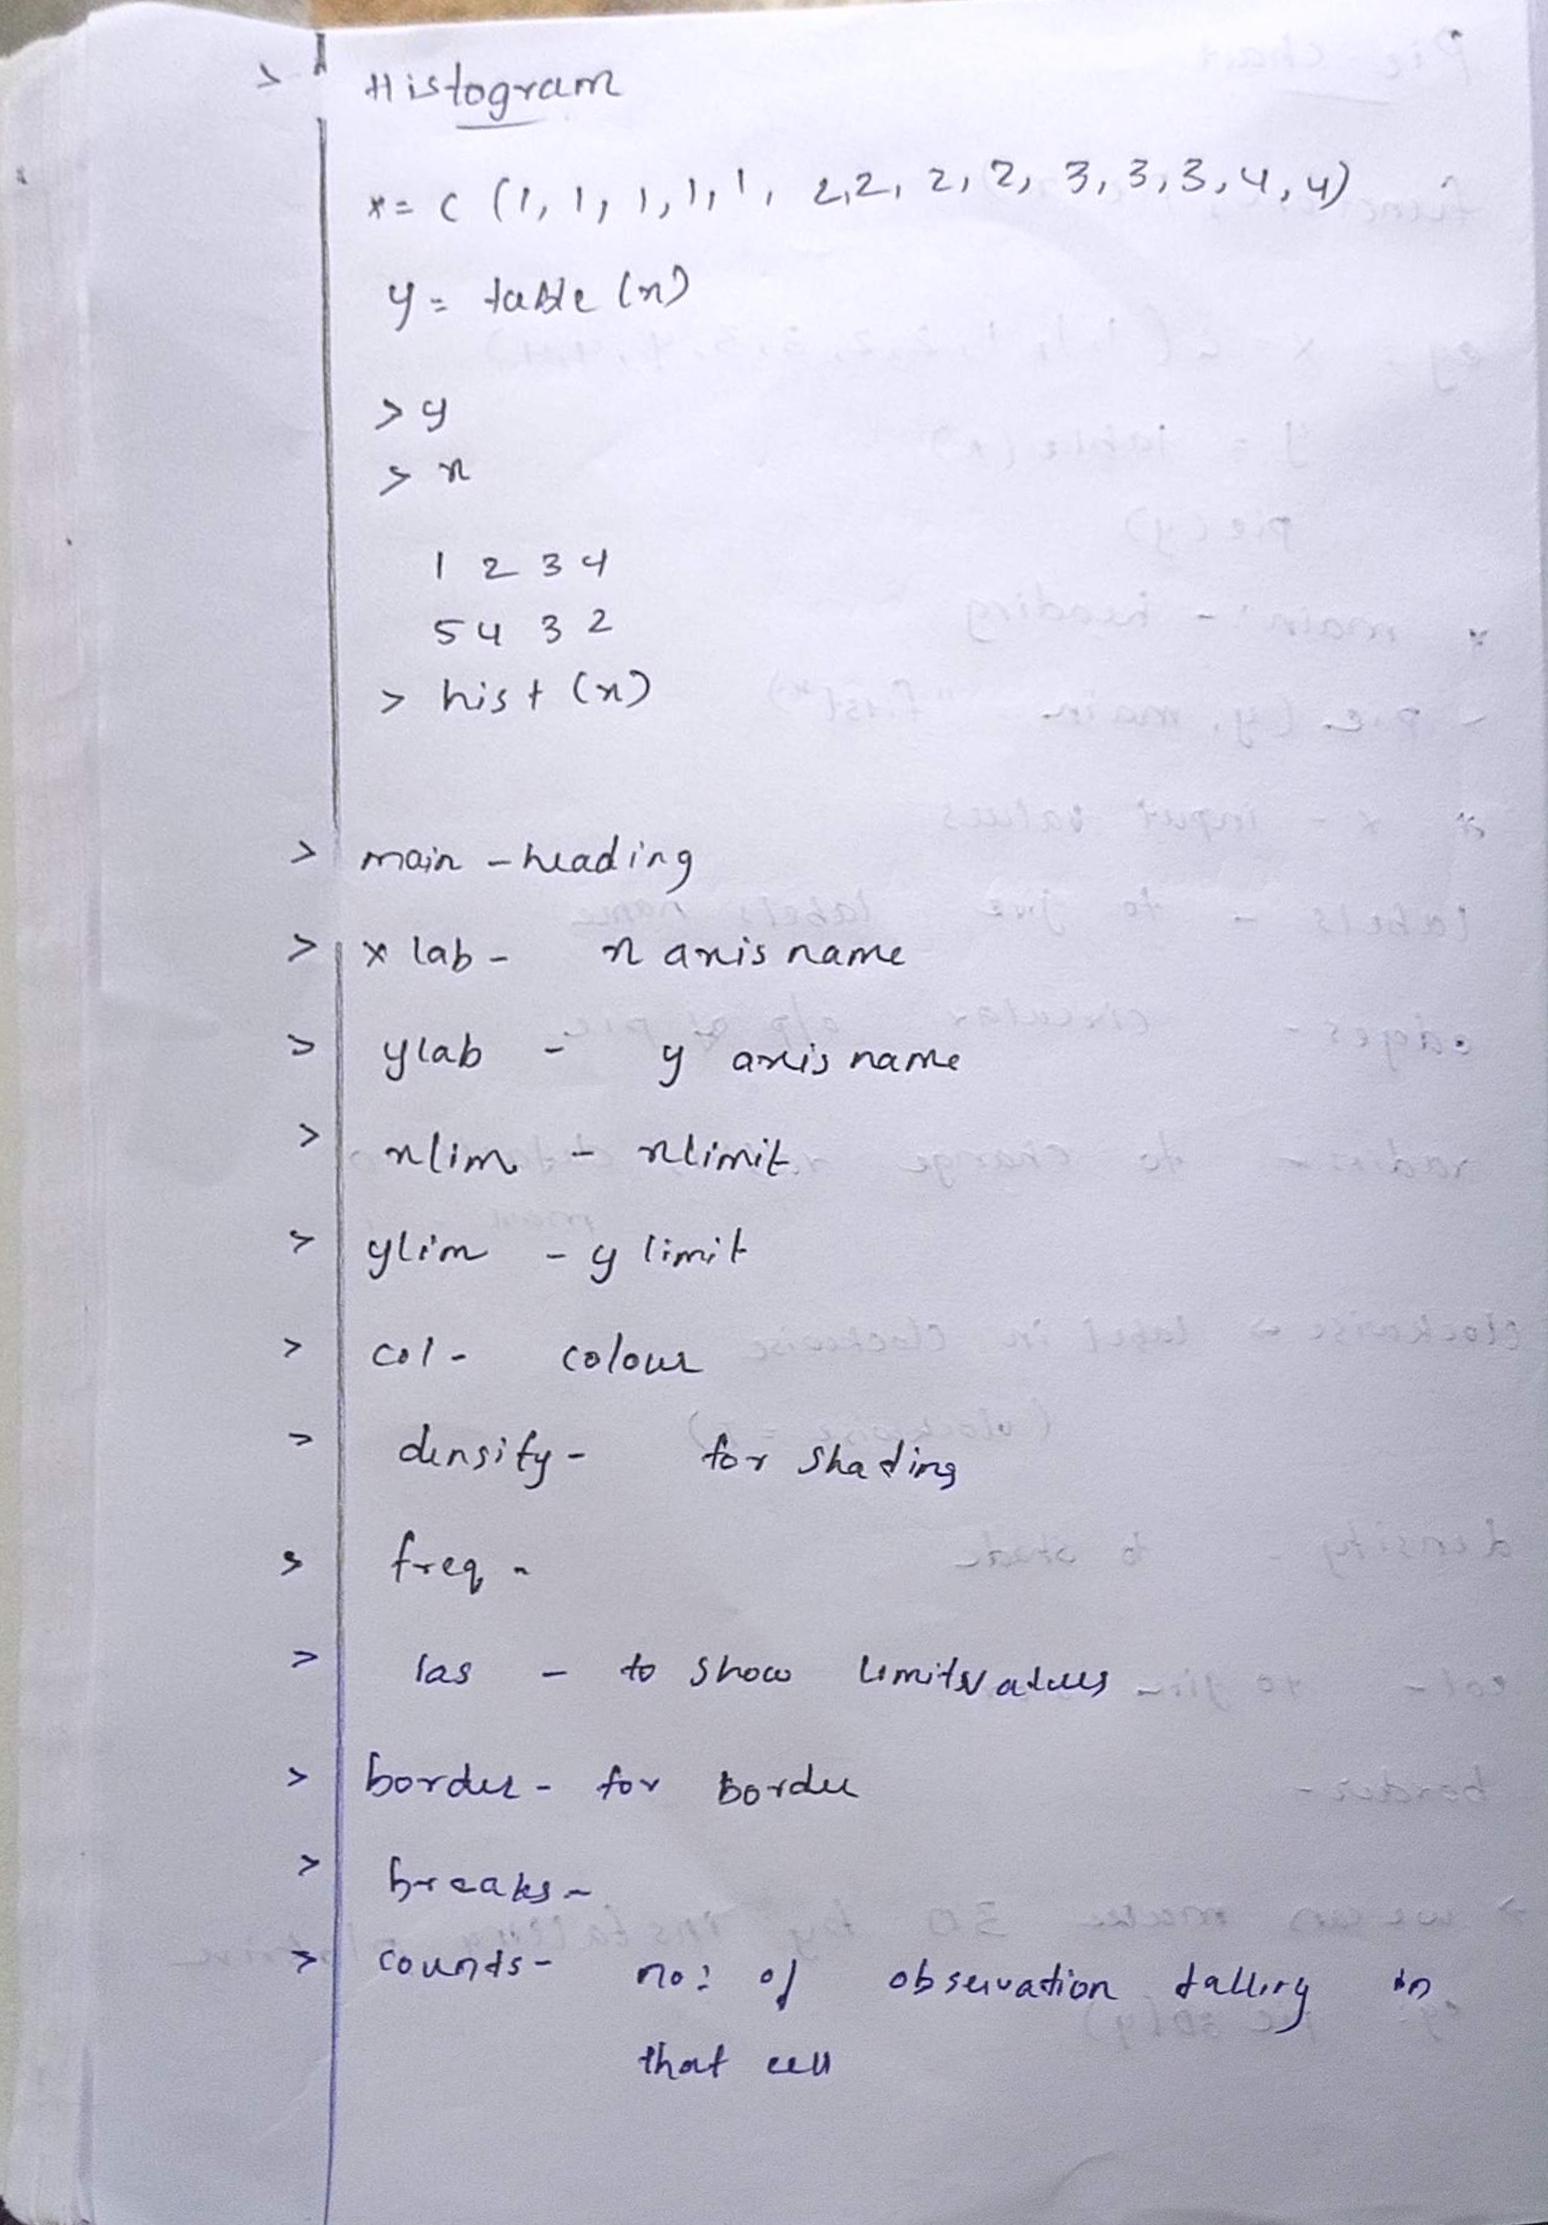 > Histogram
x = c (1, 1, 1, 1, 1, 2, 2, 2, 2, 3, 3, 3, 4, 4)
y = table (x)
> y
> x
1 2 3 4
5 4 3 2
> hist (x)
> main - heading
> x lab - x axis name
> ylab - y axis name
> xlim - xlimit
> ylim - y limit
> col - colour
> density - for shading
> freq -
> las - to show limits values
> border - for border
> breaks -
> counts - no: of observation falling in
that cell